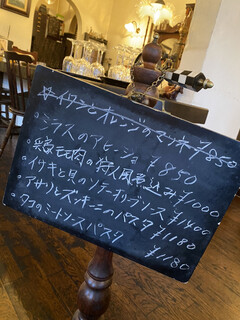 ☆イワシとオレンジのマリネ ¥850
・シラスのアヒージョ ¥850
・鶏モモ肉の狩人風煮込み ¥1000
・イサキと貝のソテーオリーブソース ¥1400
・アサリとズッキーニのパスタ ¥1180
・タコのミートソースパスタ ¥1180